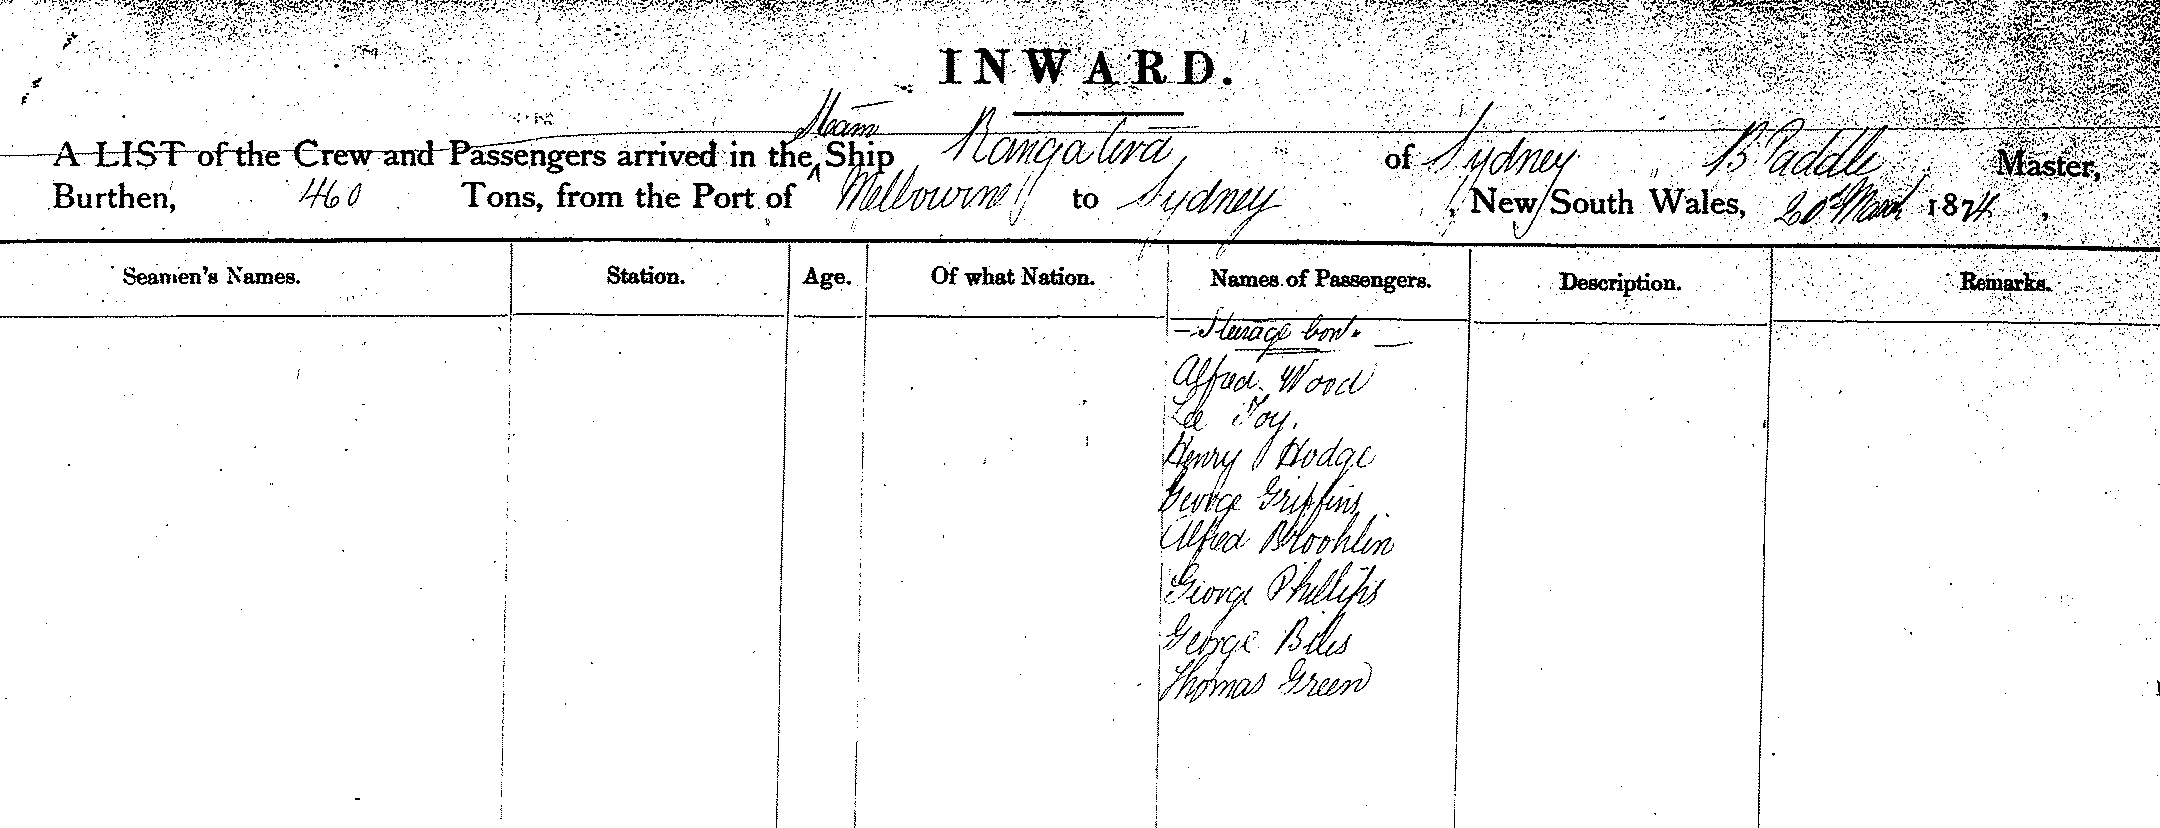 INWARD.
A LIST of the Crew and Passengers arrived in the Steam Ship Rangatira of Sydney B Paddle Master,
Burthen, 460 Tons, from the Port of Melbourne to Sydney, New South Wales, 20th March 1874,
Seamen's Names. Station. Age. Of what Nation. Names of Passengers. Description. Remarks.
Steerage Cont.
Alfred Wood
Lee Foy.
Henry Hodge
George Griffins
Alfred Brooklin
George Phillips
George Biles
Thomas Green